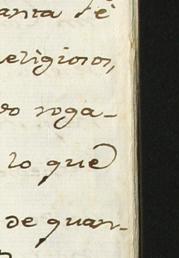 anta fé
eligiosos,
do roga-
lo que
de quan-